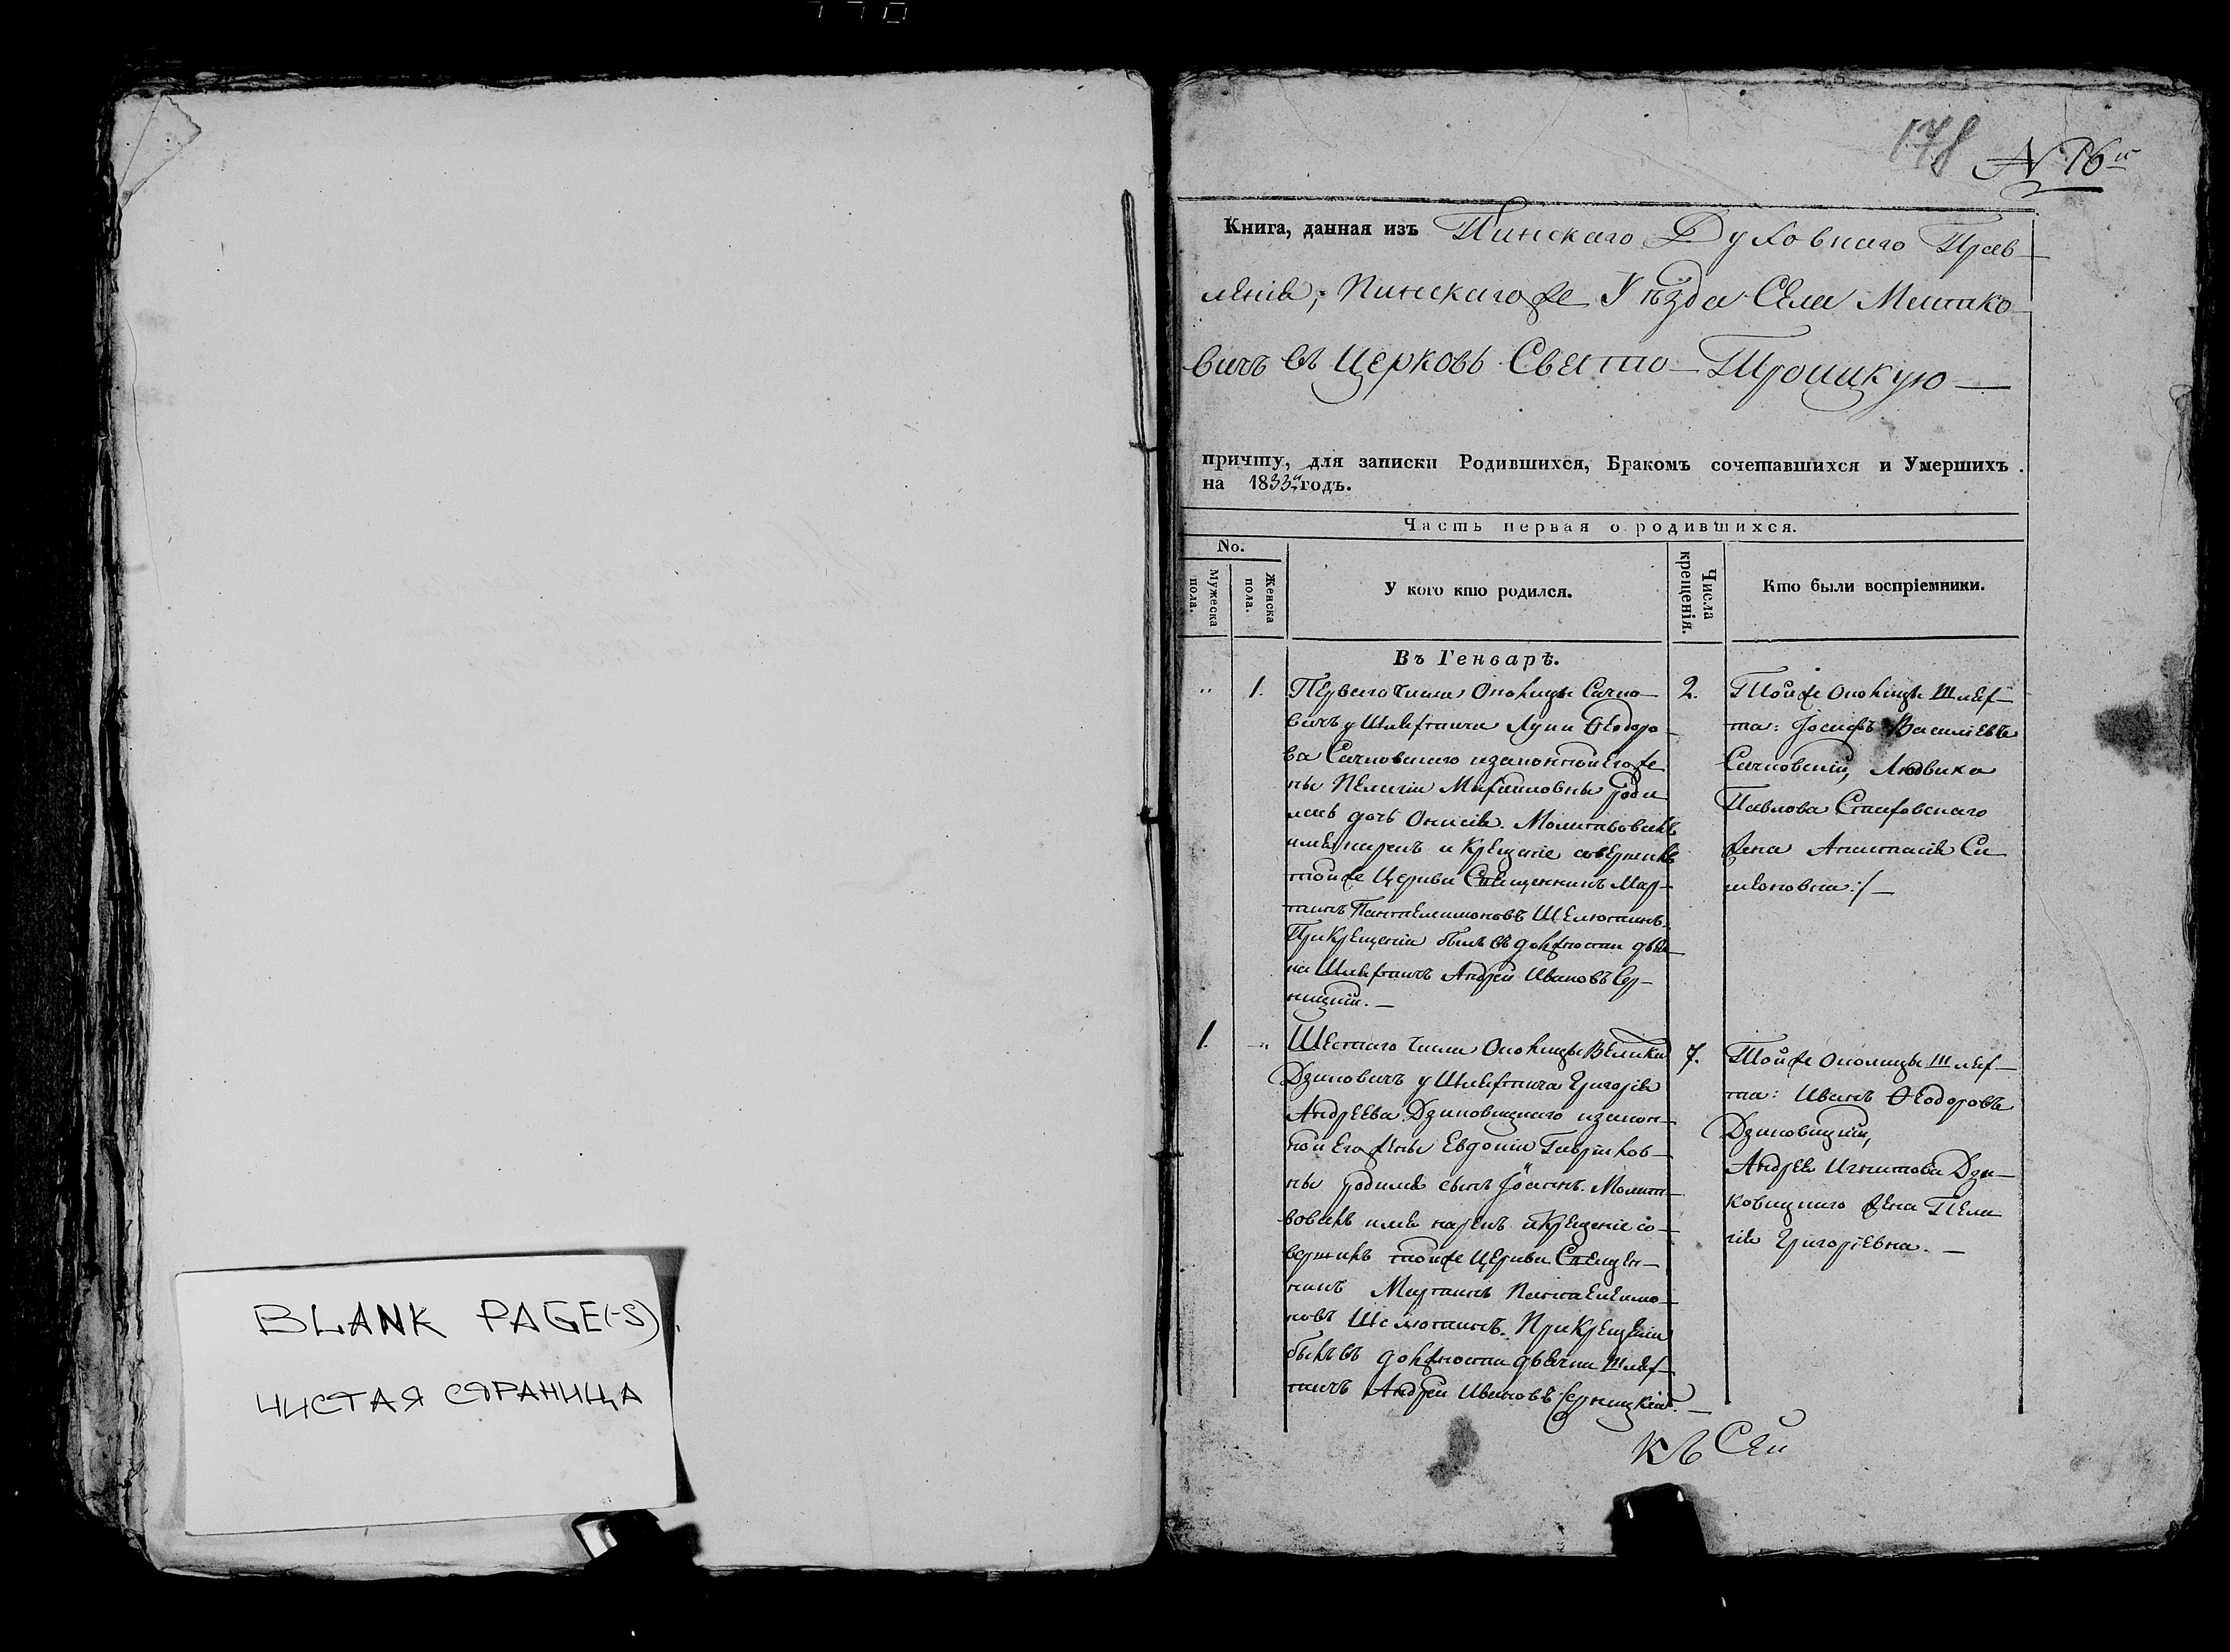 178 N 16й
Книга, данная изъ Пинскаго Духовнаго Прав-
ленія, Пинскагоже Уѣзда Села Местко-
вичъ въ Церковь Свято-Троицкую
причту, для записки Родившихся, Бракомъ сочетавшихся и Умершихъ
на 1833й годъ.
Часть первая о родившихся.
No.
Мужеска пола.
Женска пола.
У кого кто родился.
Числа крещенія.
Кто были воспріемники.
Въ Генварѣ.
1. Перваго числа Околицы Сачко-
вичъ у Шляхтича Луки Ѳеодоро-
ва Сачковскаго изаконной его же-
ны Пелагіи Михайловны роди-
лась дочь Молитвовалъ
имя нарекъ и Крещеніе совершилъ
тойже Церкви Священникъ Мар-
тинъ Пантелеимоновъ
При Крещеніи былъ въ должности дьяч-
ка Шляхтичъ Андрей Ивановъ Сер-
ницкій.
2. Тойже Околицы Шлях-
та: Іосифъ Василіевъ
Сачковскій, Людвика
Павлова
жена Анастасія Си-
меоновна
1. Шестаго числа Околицы Велики
Дзиковичъ у Шляхтича Григорія
Андреева Дзиковицкаго изакон-
ной его жены Евдокіи Гавріилов-
ны родился сынъ Іоаннъ. Молит-
вовалъ имя нарекъ и Крещеніе со-
вершилъ тойже Церкви Священ-
никъ Мартинъ Пантелеимо-
новъ При Крещеніи
былъ въ должности дьячка Шлях-
тичъ Андрей Ивановъ Серницкій.
7. Тойже Околицы Шлях-
та: Иванъ Ѳеодоровъ
Дзиковицкій,
Андрея Игнатова Дзи-
ковицкаго жена Пела-
гія Григоріевна.
Къ Сей
BLANK PAGE(-S)
ЧИСТАЯ СТРАНИЦА